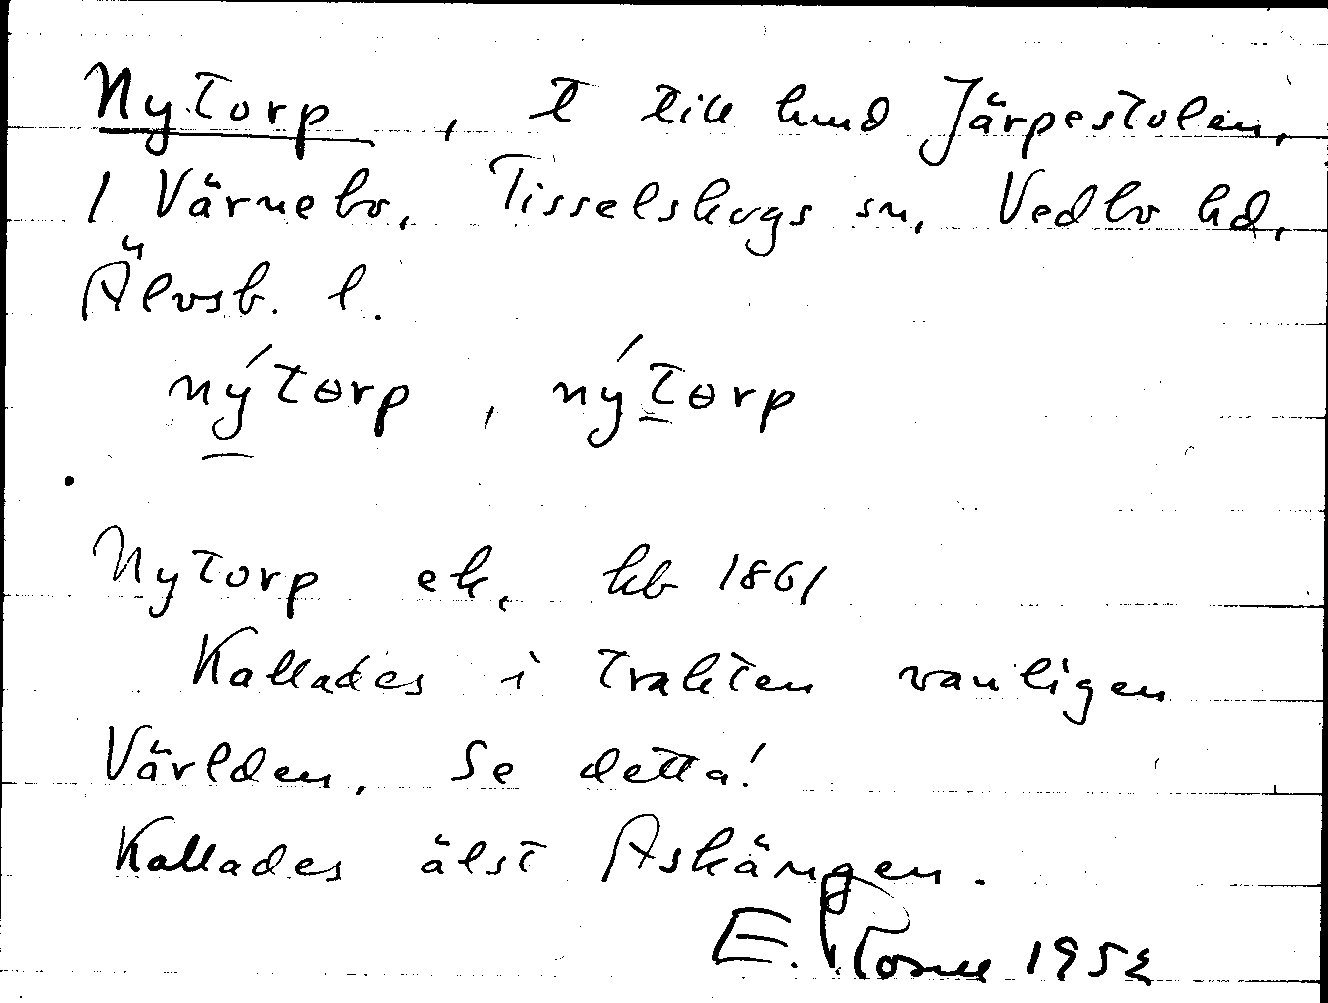 Nytorp, t till hmd Järpestolen,
1 Värnebo, Tisselskogs sn, Vedbo hd,
Älvsb. l.
nýtɵrp, nýtɵrp
Nytorp ek. kb 1861
Kallades i trakten vanligen
Världen. Se detta!
Kallades älst Askängen.
E. 1952